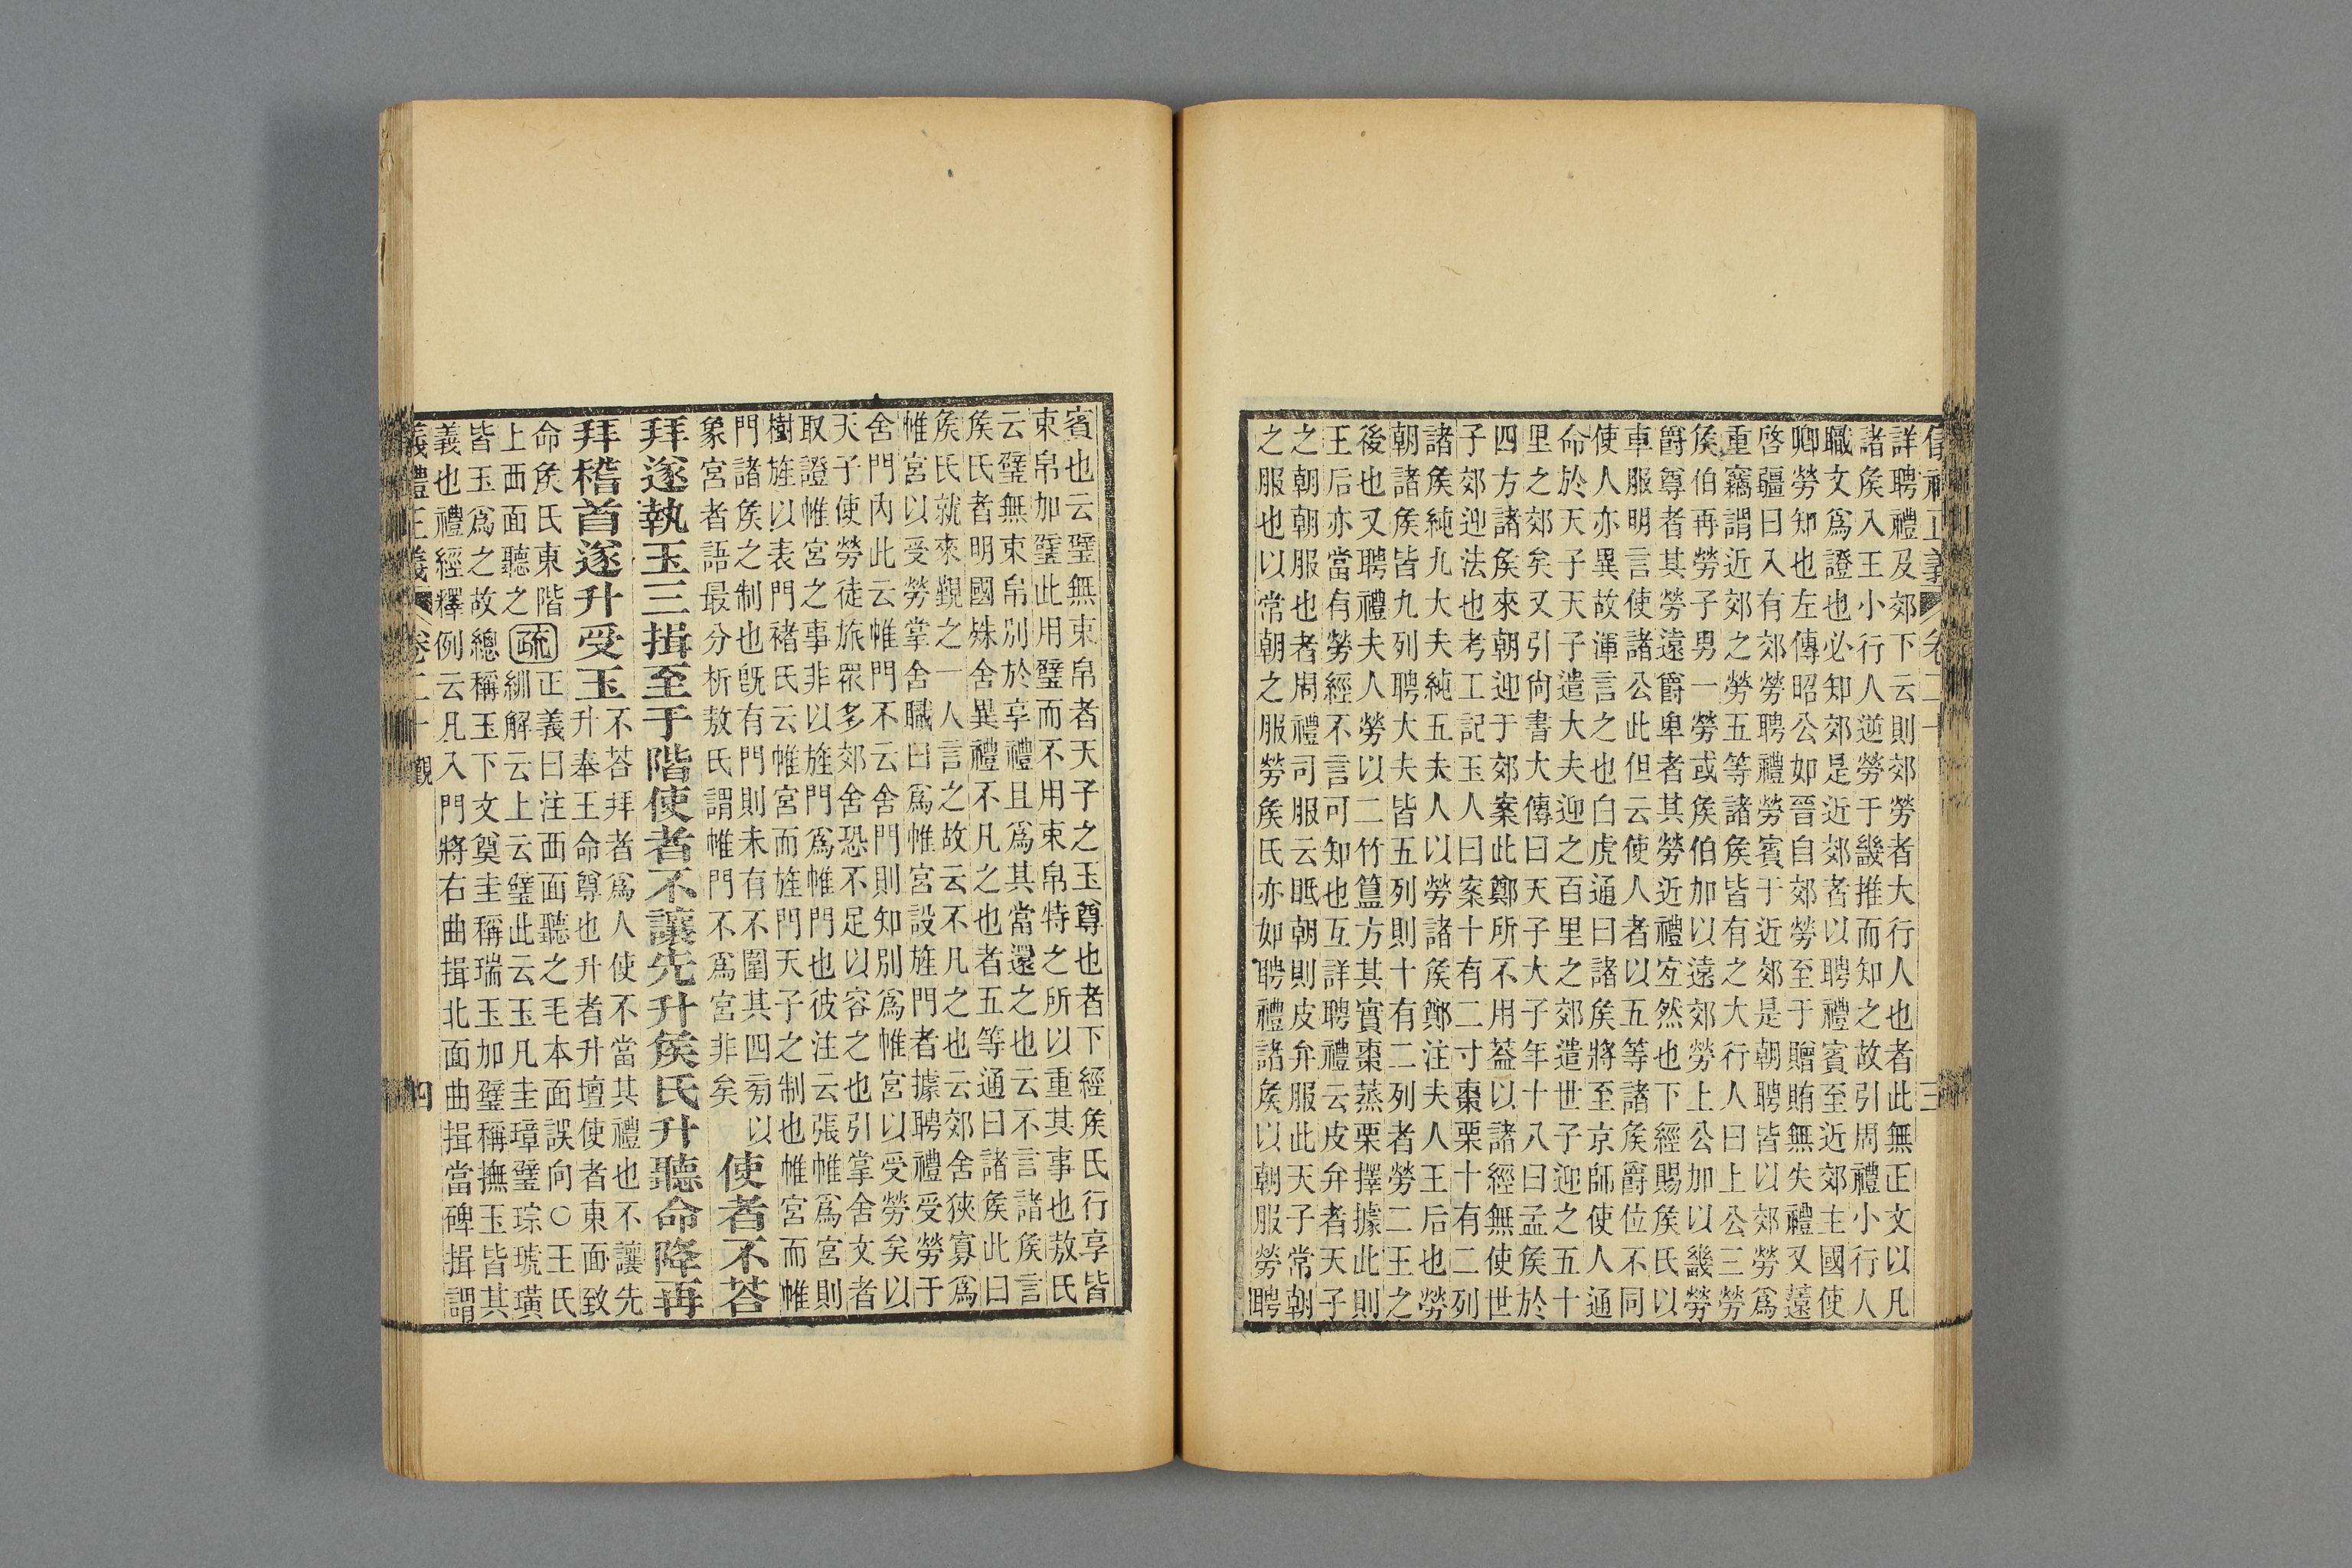 儀禮正義 卷二十 三
詳聘禮及郊下云則郊勞者大行人也者此無正文以凡
諸矦入王小行人逆勞于畿推而知之故引周禮小行人
職文爲證也必知郊是近郊者以聘禮賓至近郊主國使
卿勞知也左傳昭公如晉自郊勞至于贈賄無失禮又薳
啓疆曰入有郊勞聘禮勞賓于近郊是朝聘皆以郊勞爲
重竊謂近郊之勞五等諸矦皆有之大行人曰上公三勞
矦伯再勞子男一勞或矦伯加以遠郊勞上公加以畿勞
爵尊者其勞遠爵卑者其勞近禮宐然也下經賜矦氏以
車服明言使諸公此但云使人者以五等諸矦爵位不同
使人亦異故渾言之也白虎通曰諸矦將至京師使人通
命於天子天子遣大夫迎之百里之郊遣世子迎之五十
里之郊矣又引尙書大傳曰天子大子年十八曰孟矦於
四方諸矦來朝迎于郊案此鄭所不用葢以諸經無使世
子郊迎法也考工記玉人曰案十有二寸棗栗十有二列
諸矦純九大夫純五夫人以勞諸矦鄭注夫人王后也勞
朝諸矦皆九列聘大夫皆五列則十有二列者勞二王之
後也又聘禮夫人勞以二竹簋方其實棗蒸栗擇據此則
王后亦當有勞經不言可知也互詳聘禮云皮弁者天子
之朝朝服也者周禮司服云眡朝則皮弁服此天子常朝
之服也以常朝之服勞矦氏亦如聘禮諸矦以朝服勞聘
賓也云璧無束帛者天子之玉尊也者下經矦氏行享皆
束帛加璧此用璧而不用束帛特之所以重其事也敖氏
云璧無束帛別於享禮且爲其當還之也云不言諸矦言
矦氏者明國殊舍異禮不凡之也者五等通曰諸矦此曰
矦氏就來覲之一人言之故云不凡之也云郊舍狹寡爲
帷宮以受勞掌舍職曰爲帷宮設旌門者據聘禮受勞于
舍門內此云帷門不云舍門則知別爲帷宮以受勞矣以
天子使勞徒旅眾多郊舍恐不足以容之也引掌舍文者
取證帷宮之事非以旌門爲帷門也彼注云張帷爲宮則
樹旌以表門褚氏云帷宮而旌門天子之制也帷宮而帷
門諸矦之制也旣有門則未有不圍其四旁以
象宮者語最分析敖氏謂帷門不爲宮非矣
使者不荅
拜遂執玉三揖至于階使者不讓先升矦氏升聽命降再
拜稽首遂升受玉
不荅拜者爲人使不當其禮也不讓先
升奉王命尊也升者升壇使者東面致
命矦氏東階
上西面聽之
疏
正義曰注西面聽之毛本面誤向○王氏
紃解云上云璧此云玉凡圭璋璧琮琥璜
皆玉爲之故總稱玉下文奠圭稱瑞玉加璧稱撫玉皆其
義也禮經釋例云凡入門將右曲揖北面曲揖當碑揖謂
儀禮正義 卷二十 覲 四